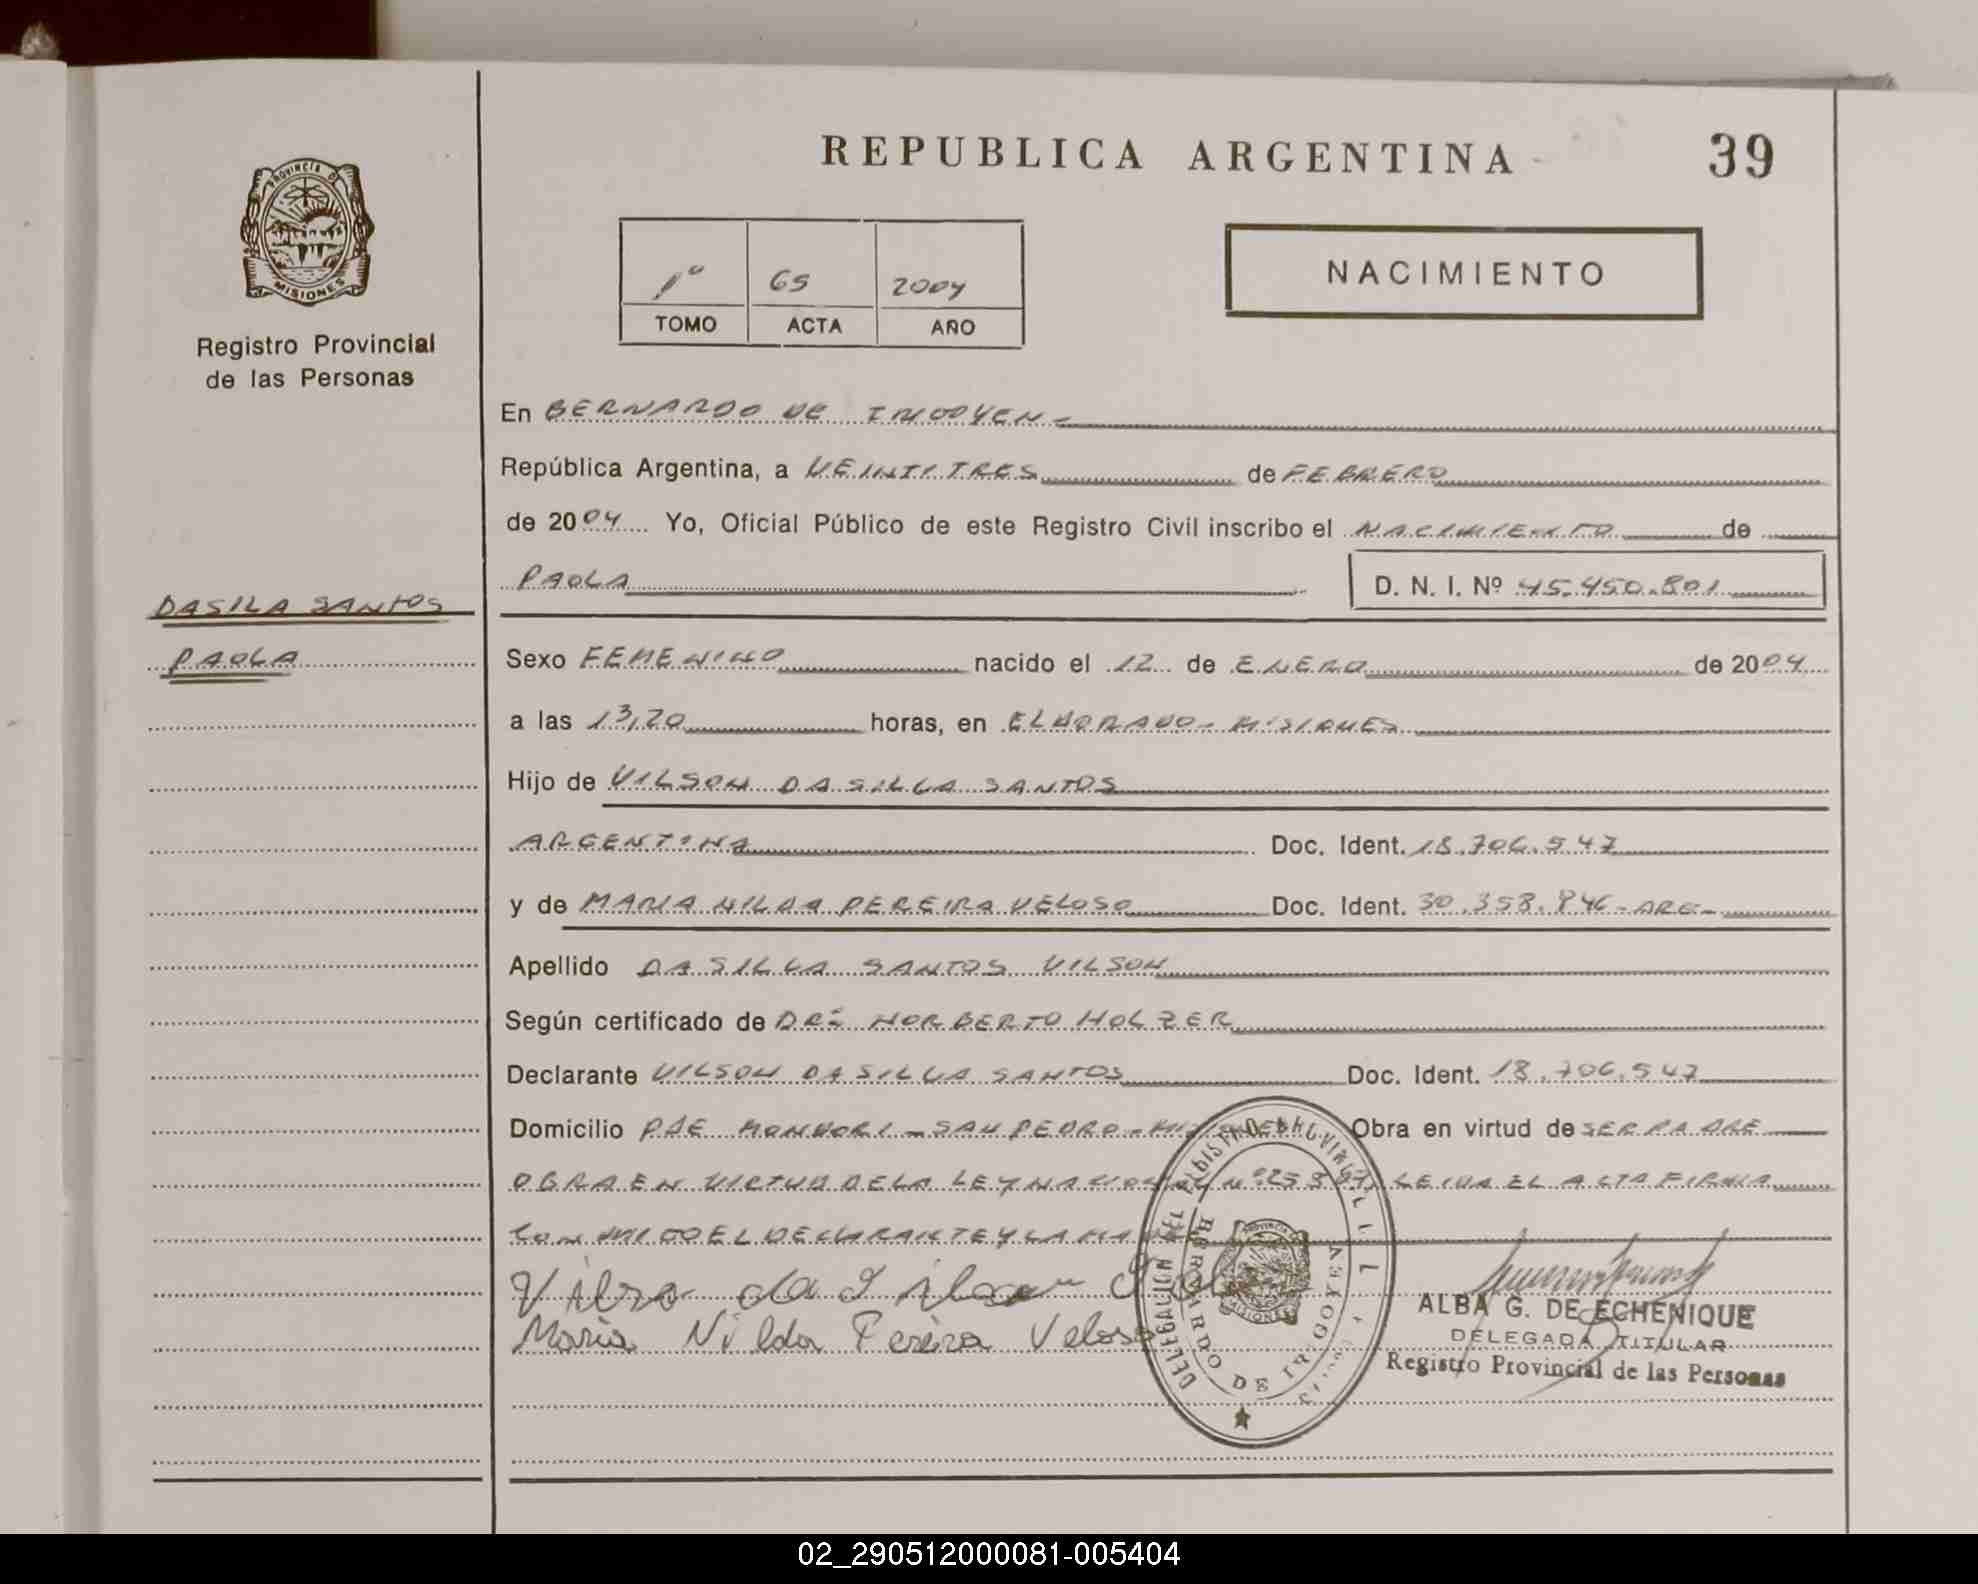 REPUBLICA ARGENTINA
39
PROVINCIA DE
MISIONES
Registro Provincial
de las Personas
1º 65 2004
TOMO ACTA AÑO
NACIMIENTO
En BERNARDO DE IRIGOYEN
República Argentina, a VEINTITRES de FEBRERO
de 2004 Yo, Oficial Público de este Registro Civil inscribo el NACIMIENTO de
PAOLA D. N. I. Nº 45.450.801
DASILA SANTOS
PAOLA
Sexo FEMENINO nacido el 12 de ENERO de 2004
a las 13,20 horas, en ELDORADO - MISIONES
Hijo de VILSON DA SILVA SANTOS
ARGENTINA Doc. Ident. 18.706.547
y de MARIA NILDA PEREIRA VELOSO Doc. Ident. 30.358.846 - ARG -
Apellido DA SILVA SANTOS VILSON
Según certificado de DR: NORBERTO HOLZER
Declarante VILSON DA SILVA SANTOS Doc. Ident. 18.706.547
Domicilio PJE MONDORI - SAN PEDRO - Obra en virtud de SER PADRE
OBRA EN VIRTUD DE LA LEY NACIONAL Nº LEIDA EL ACTA FIRMA
CONMIGO EL DECLARANTE Y LA
da Silva
Maria Nilda Pereira Veloso
DELEGACION DEL REGISTRO PROVINCIAL
BERNARDO DE IRIGOYEN
PROVINCIA
MISIONES
ALBA G. DE ECHENIQUE
DELEGADA TITULAR
Registro Provincial de las Personas
02_290512000081-005404